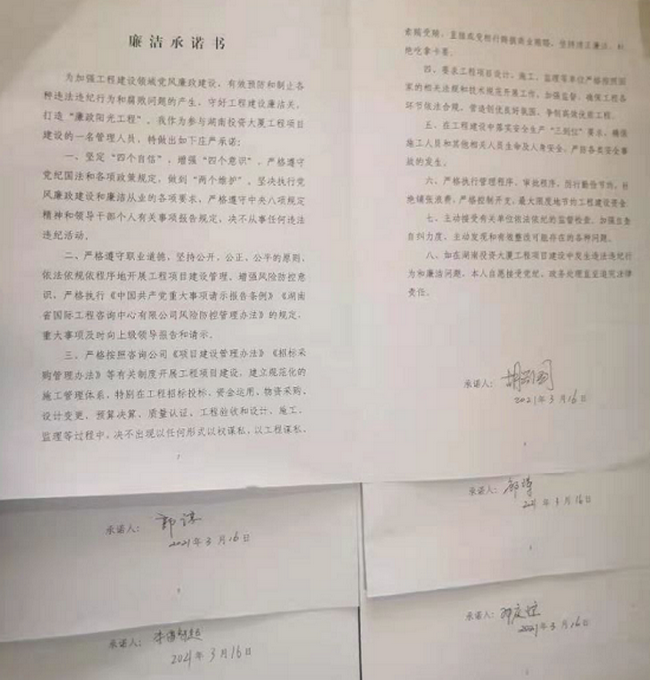 廉洁承诺书
为加强工程建设领域党风廉政建设，有效预防和制止各
种违法违纪行为和腐败问题的产生，守好工程建设廉洁关，
打造“廉政阳光工程”，我作为参与湖南投资大厦工程项目
建设的一名管理人员，特做出如下庄严承诺：
一、坚定“四个自信”，增强“四个意识”，严格遵守
党纪国法和各项政策规定，做到“两个维护”。坚决执行党
风廉政建设和廉洁从业的各项要求，严格遵守中央八项规定
精神和领导干部个人有关事项报告规定，决不从事任何违法
违纪活动。
二、严格遵守职业道德，坚持公开、公正、公平的原则，
依法依规依程序地开展工程项目建设管理，增强风险防控意
识，严格执行《中国共产党重大事项请示报告条例》《湖南
省国际工程咨询中心有限公司风险防控管理办法》的规定，
重大事项及时向上级领导报告和请示。
三、严格按照咨询公司《项目建设管理办法》《招标采
购管理办法》等有关制度开展工程项目建设，建立规范化的
施工管理体系，特别在工程招标投标、资金运用、物资采购、
设计变更、预算决算、质量认证、工程验收和设计、施工、
监理等过程中，决不出现以任何形式以权谋私，以工程谋私、
索贿受贿，直接或变相行贿搞商业贿赂，坚持清正廉洁，杜
绝吃拿卡要。
四、要求工程项目设计、施工、监理等单位严格按照国
家的相关法规和技术规范开展工作，加强监督，确保工程各
环节依法合规，营造创优良好氛围，争创高效优质工程。
五、在工程建设中落实安全生产“三到位”要求，确保
施工人员和其他相关人员生命及人身安全，严防各类安全事
故的发生。
六、严格执行管理程序、审批程序，厉行勤俭节约，杜
绝铺张浪费，严格控制开支，最大限度地节约工程建设资金
七、主动接受有关单位依法依纪的监督检查，加强自查
自纠力度，主动发现和有效整改可能存在的各种问题。
八、如在湖南投资大厦工程项目建设中发生违法违纪行
为和廉洁问题，本人自愿接受党纪、政务处理直至追究法律
责任。
承诺人：
2021年3月16日
承诺人：
2021年3月16日
承诺人：
2021年3月16日
承诺人：
2021年3月16日
承诺人：
2021年3月16日